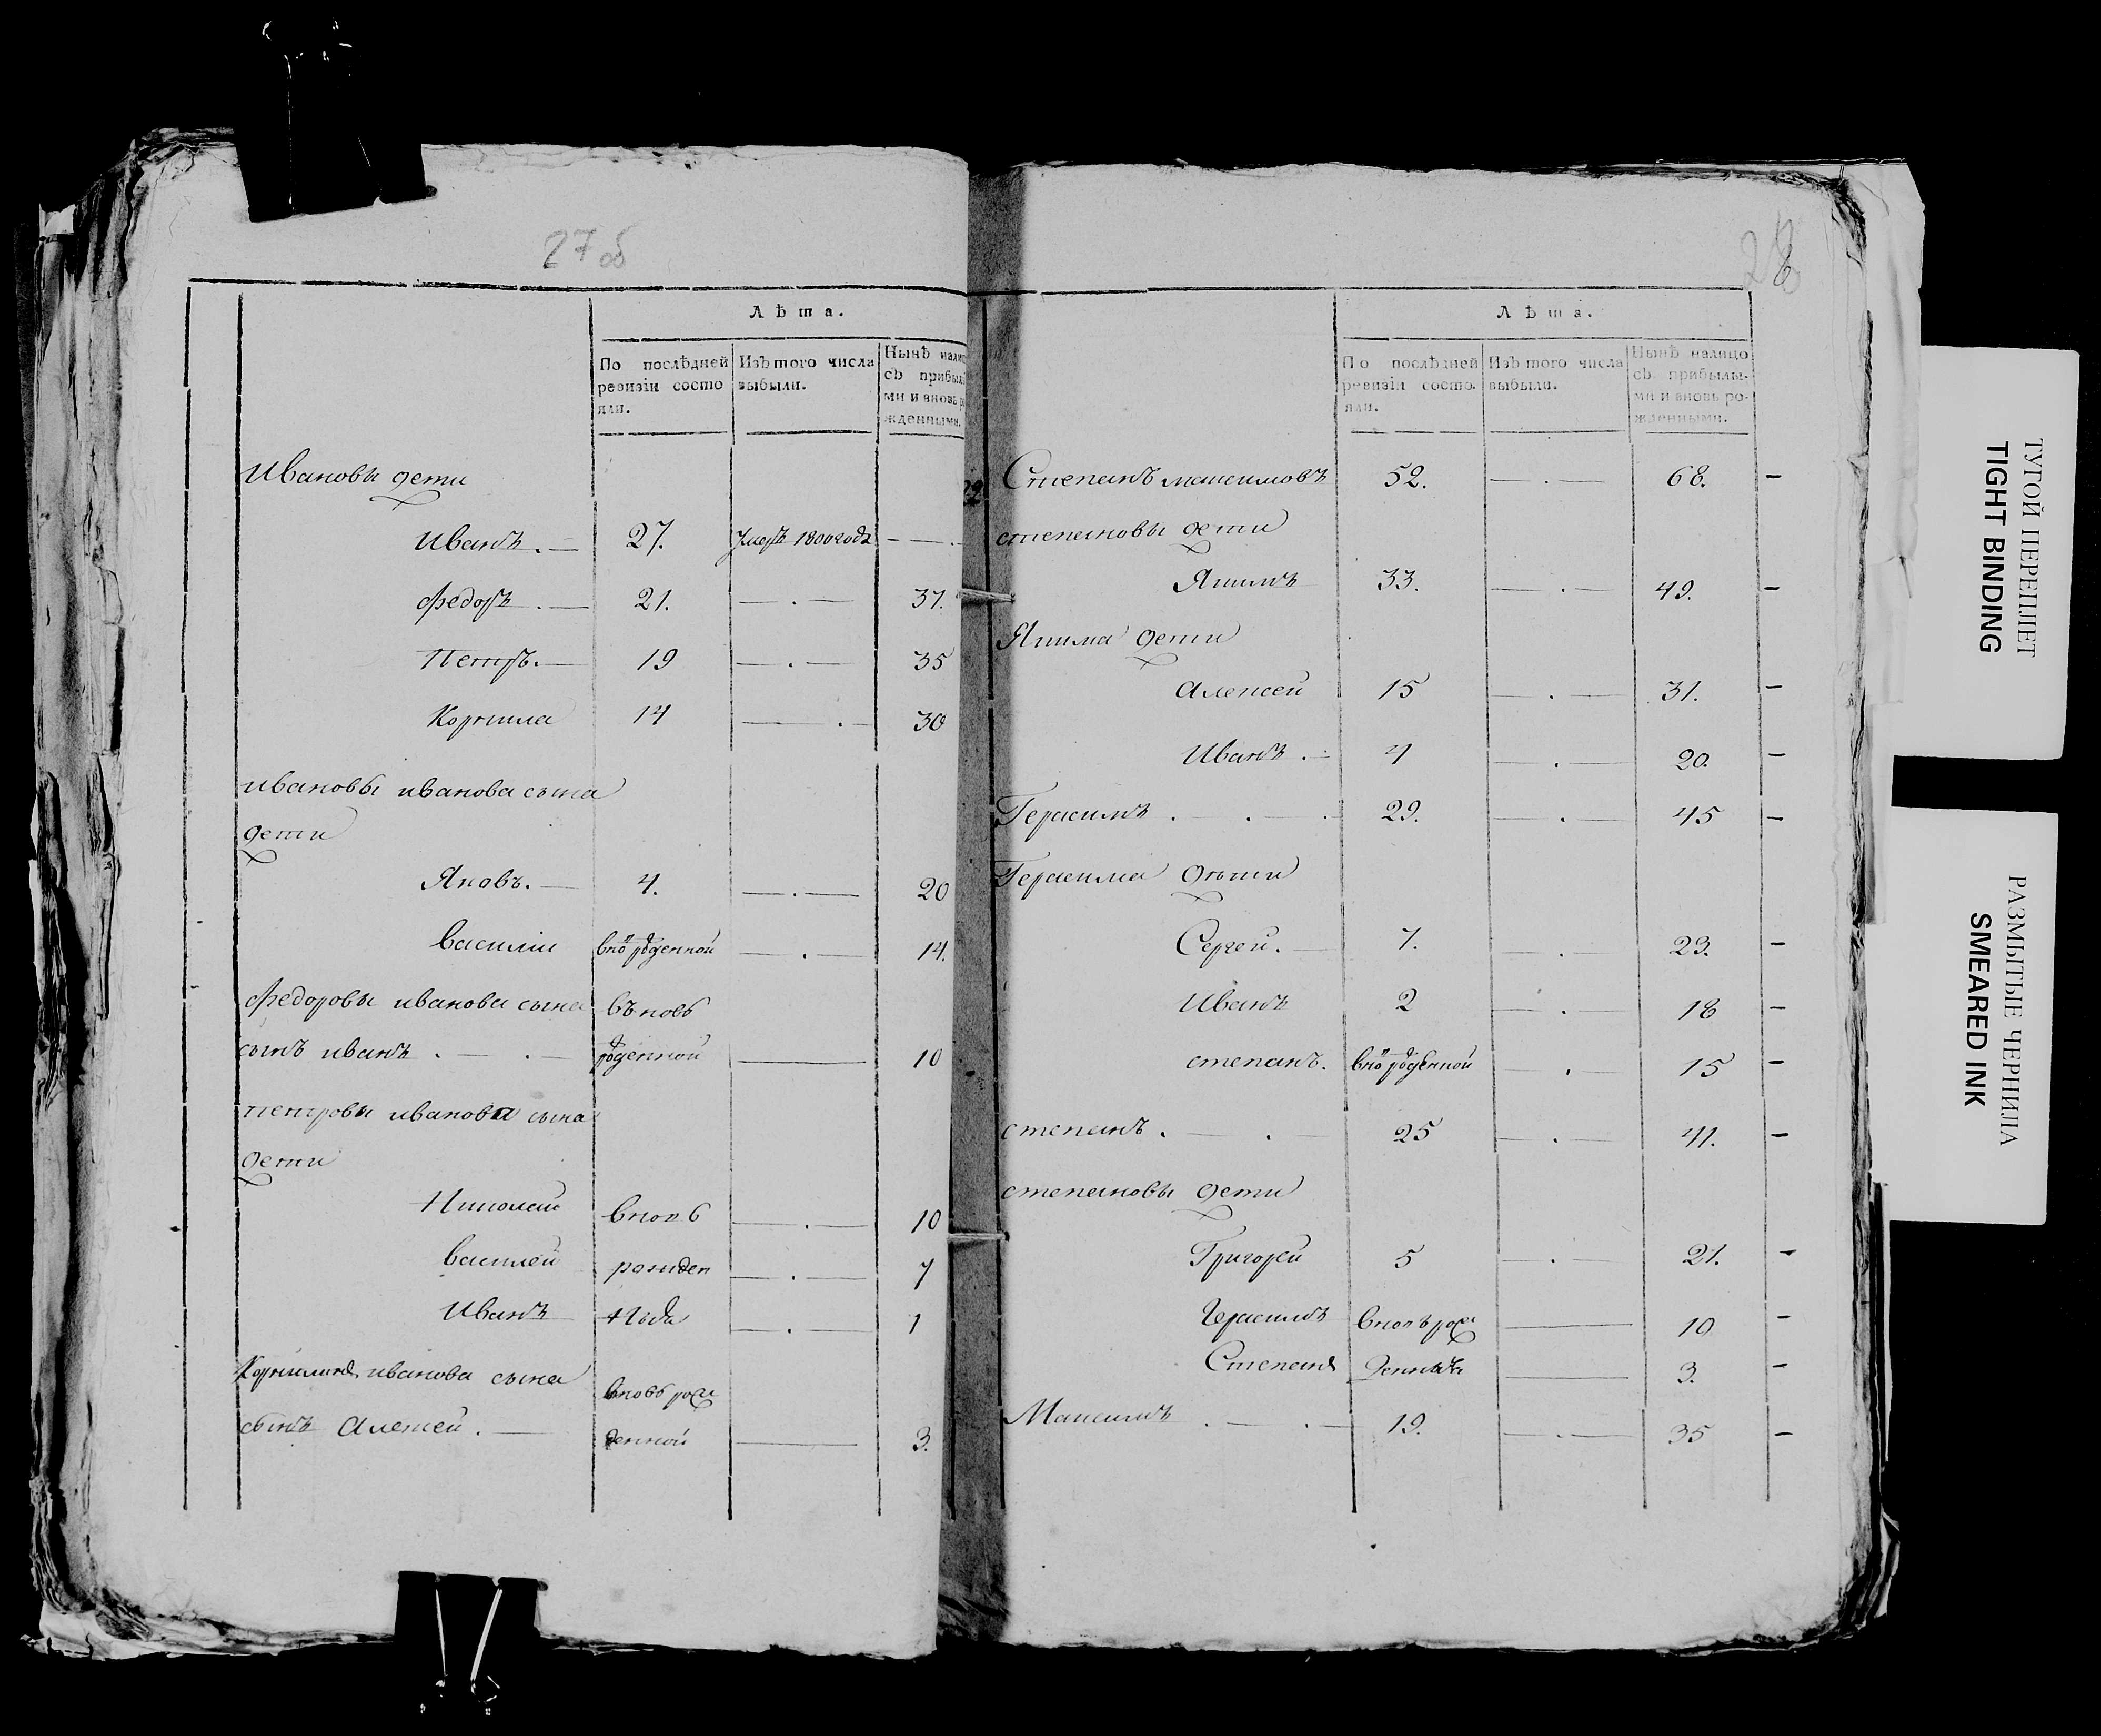 27 об
Лѣта.
По послѣдней Изъ того числа Нынѣ налиц
ревизіи состо выбыли. съ прибыл
яли. ми и вновь р
жденными.
Ивановы дети
Иванъ. — 27. умеръ 1800 года — —
Федоръ . — 21. — . — 37.
Петръ. — 19 — . — 35
Корнила 14 — . — 30
ивановы иванова сына
дети
Яковъ. — 4. — . — 20
василии вно рожденной — . — 14.
Федоровы иванова сына въновь
сынъ иванъ . — . — рожденной — 10
петровы иванова сына
дети
Николай вновь — . — 10
василей рожден — . — 7
Иванъ — . — 1
Корнилинъ иванова сына
вновь рож
сынъ Алексей . — денной — 3.
28
Лѣта.
По послѣдней Изъ того числа Нынѣ налицо
ревизіи состо. выбыли. съ прибылы-
яли. ми и вновь ро-
жденными.
Степанъ максимовъ 52. — . — 68. –
степановы дети
Якимъ 33. — . — 49. –
Якима дети
Алексей 15 — . — 31. –
Иванъ . — 4 — . — 20. –
Герасимъ . — . — . 29. — . — 45 –
Герасима дѣти
Сергей. — 7. — . — 23. –
Иванъ 2 — . — 18 –
степанъ. вно рожденной — . — 15 –
степанъ . — . — 25 — . — 41. –
степановы дети
Григорей 5 — . — 21. –
Герасимъ вновь рож — 10 –
Степанъ денныя — 3. –
Максимъ . — . — 19. — . — 35 –
ТУГОЙ ПЕРЕПЛЕТ
TIGHT BINDING
РАЗМЫТЫЕ ЧЕРНИЛА
SMEARED INK